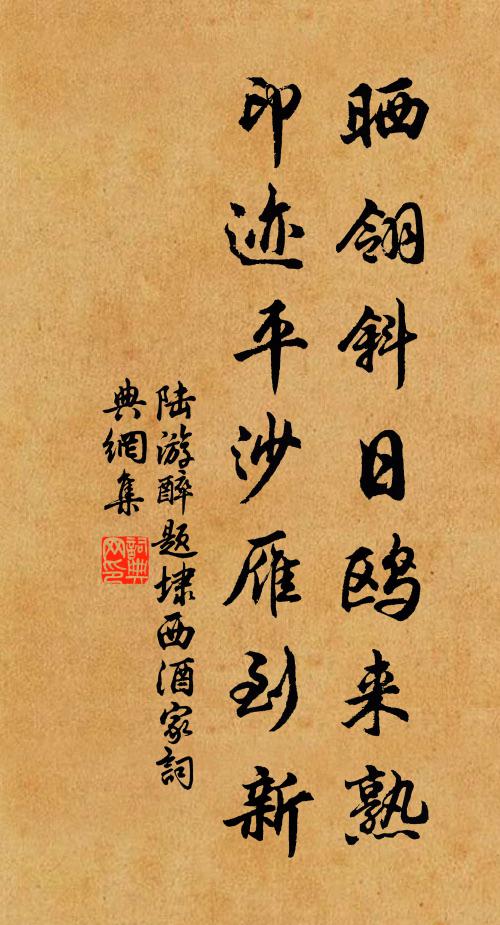 晒翎斜日鸥来熟
印迹平沙雁到新
陆游醉题埭西酒家詞
典網集
詞典
网印